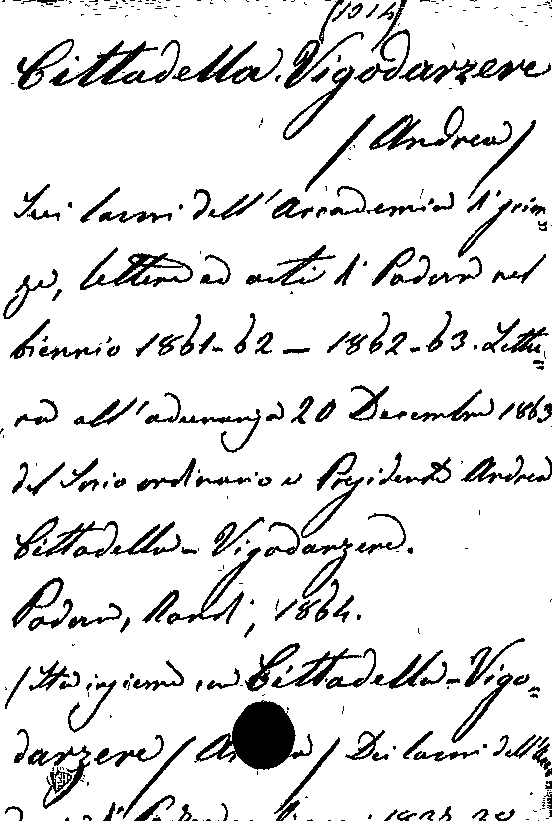 (1914)
Cittadella-Vigodarzere
/Andrea/
Sui lavori dell'Accademia di scien=
ze, lettere ed arti di Padova nel
biennio 1861-62 — 1862-63. Lettu=
ra all'adunanza 20 Decembre 1863
del Socio ordinario e Presidente Andrea
Cittadella-Vigodarzere.
Padova, Randi, 1864.
/Sta insieme con Cittadella-Vigo=
darzere / / Dei lavori dell'